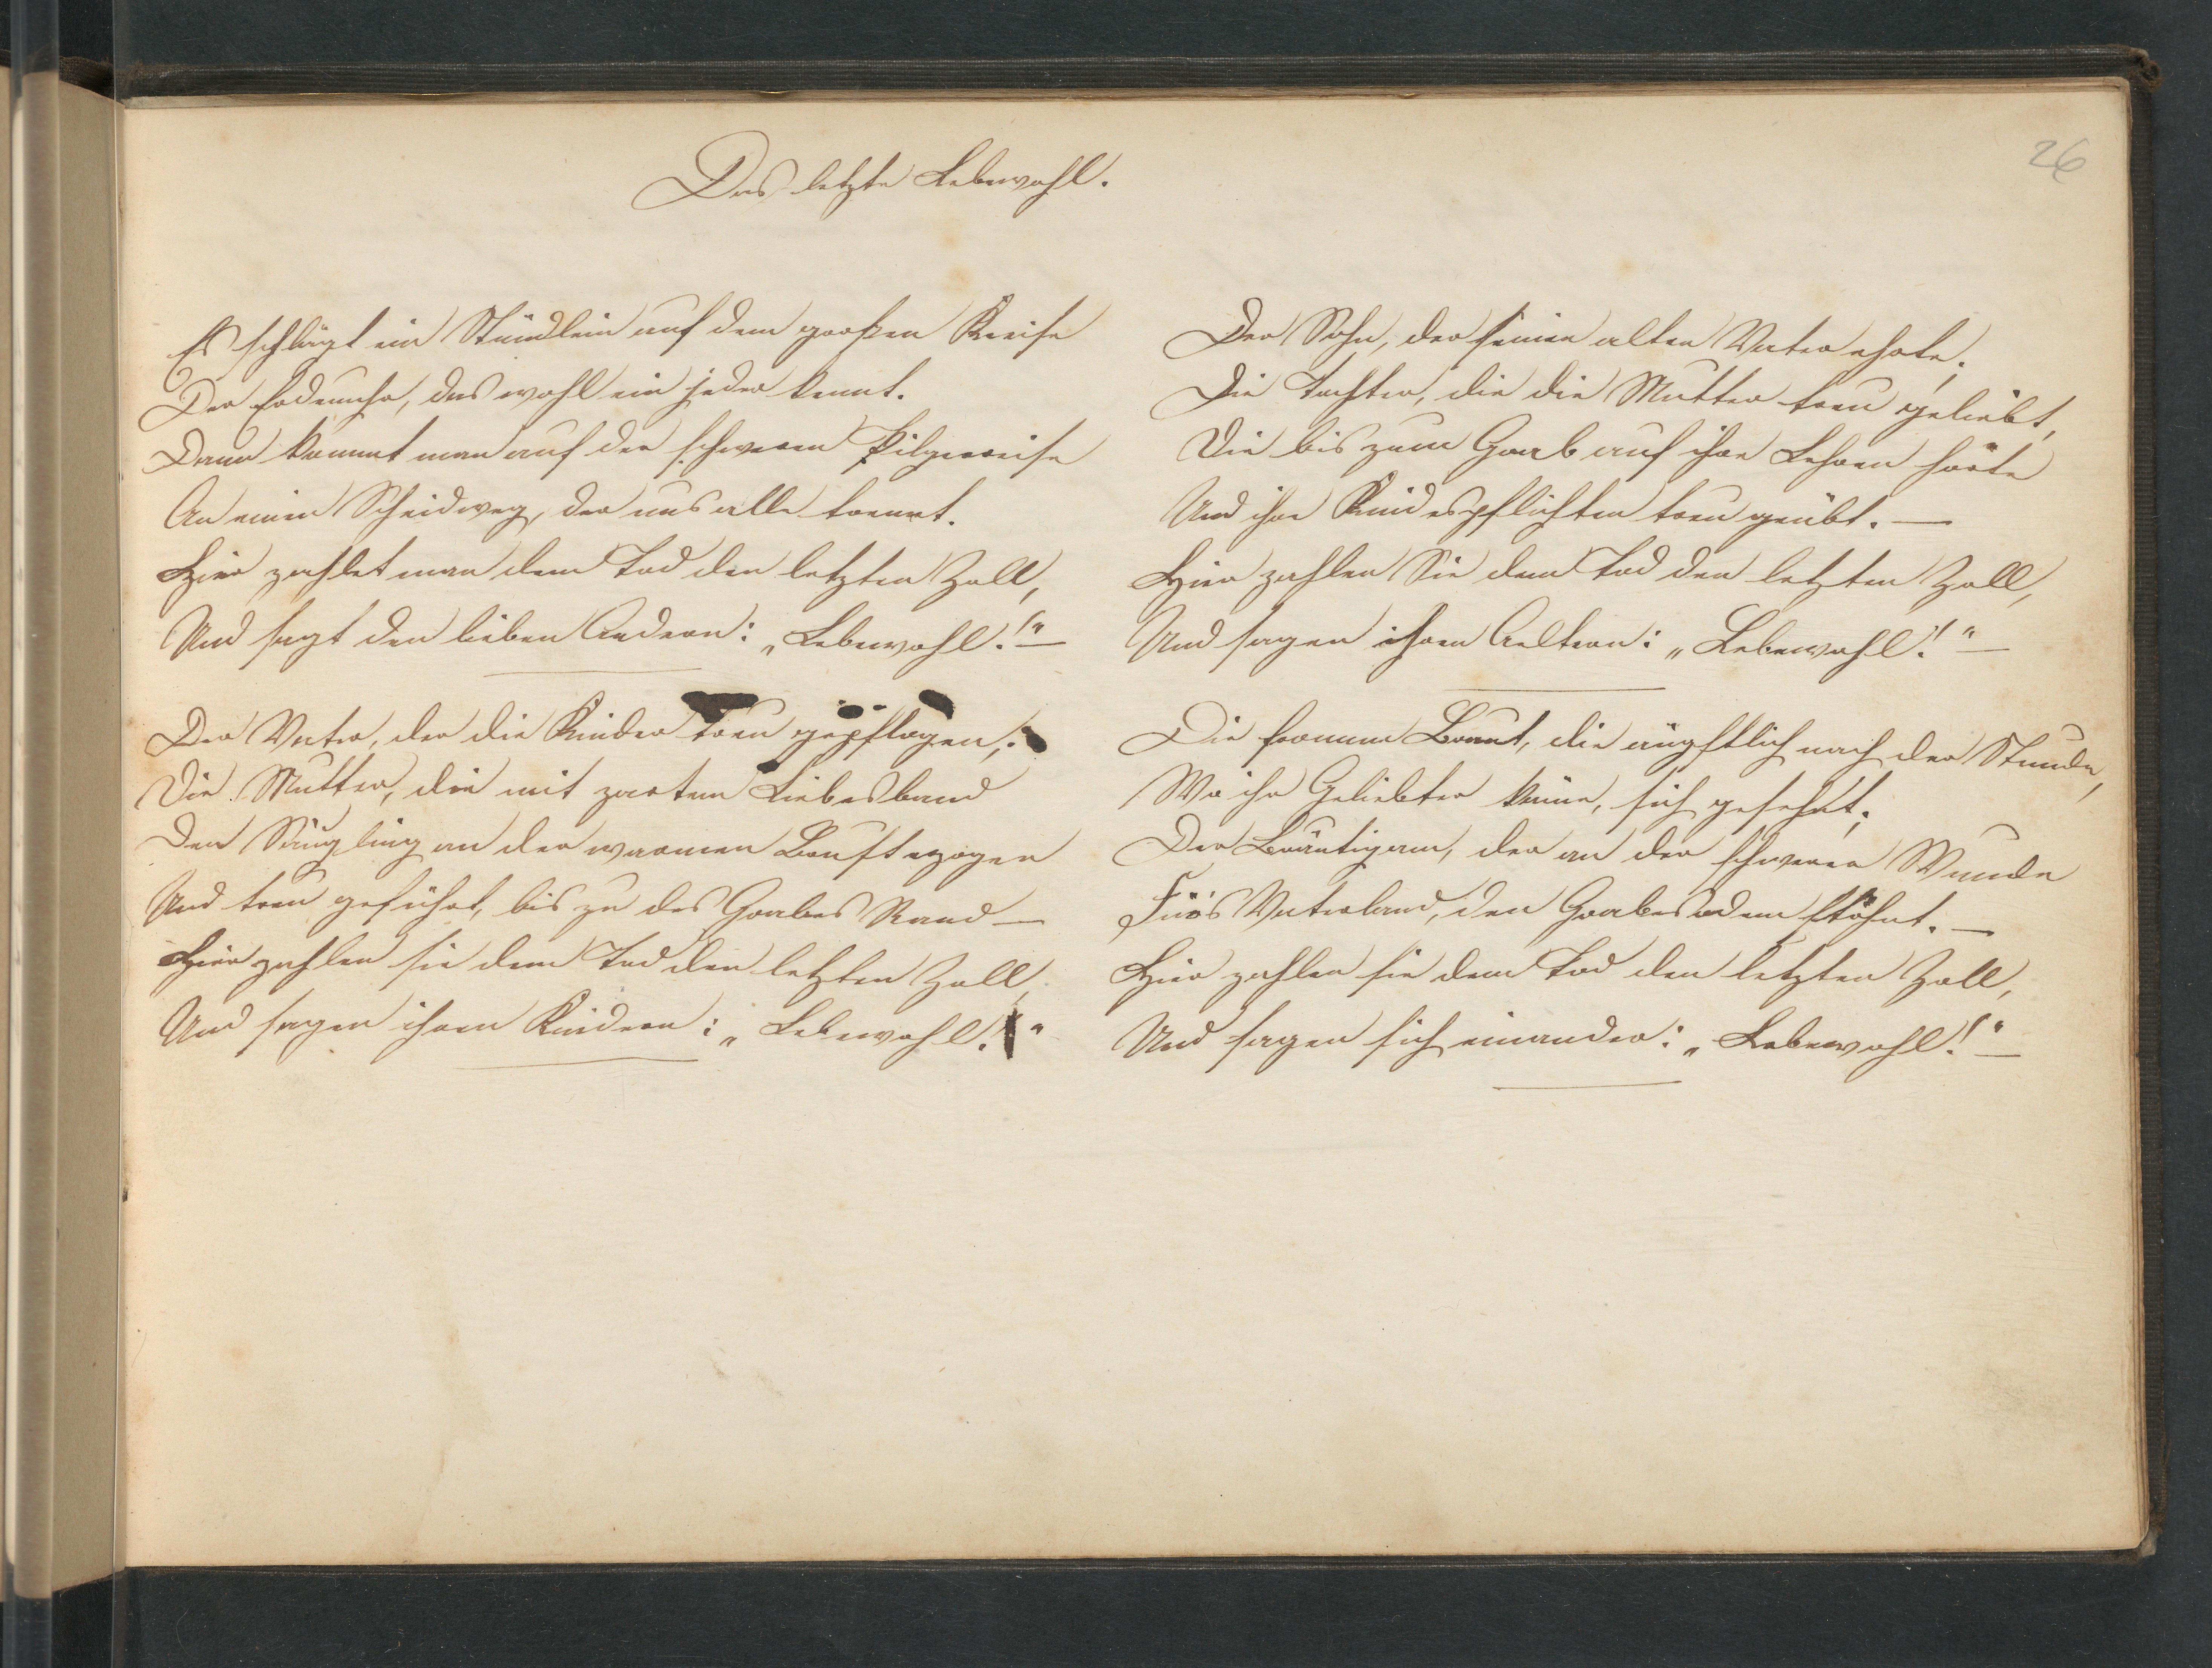 26
Das letzte Lebewohl.
Es schlägt ein Stündlein auf dem großen Kreise
Der Erdenuhr, das wohl ein jeder kennt.
Dann kommt man auf der schweren Pilgerreise
An einen Scheidweg, der uns alle trennt.
Hier zahlet man dem Tod den letzten Zoll,
Und sagt den lieben Andern: „Lebewohl!“ —
Der Vater, der die Kinder treu gepflogen,
Die Mutter, die mit zartem Liebesband
Den Säugling an der warmen Brust erzogen
Und treu geführt, bis zu des Grabes Rand —
Hier zahlen sie dem Tod den letzten Zoll,
Und sagen ihren Kindern: „Lebewohl!“
Der Sohn, der seinen alten Vater ehrte;
Die Tochter, die die Mutter treu geliebt,
Die bis zum Grab auf ihre Lehren hörte
Und ihre Kindespflichten treu geübt. —
Hier zahlen Sie dem Tod den letzten Zoll,
Und sagen ihren Aeltern: „Lebewohl!“ —
Die fromme Braut, die ängstlich nach der Stunde,
Wo ihr Geliebter käme, sich gesehnt;
Der Bräutigam, der an der schweren Wunde
Für's Vaterland, den Grabesodem stöhnt. —
Hier zahlen sie dem Tod den letzten Zoll,
Und sagen sich einander: „Lebewohl!“ —